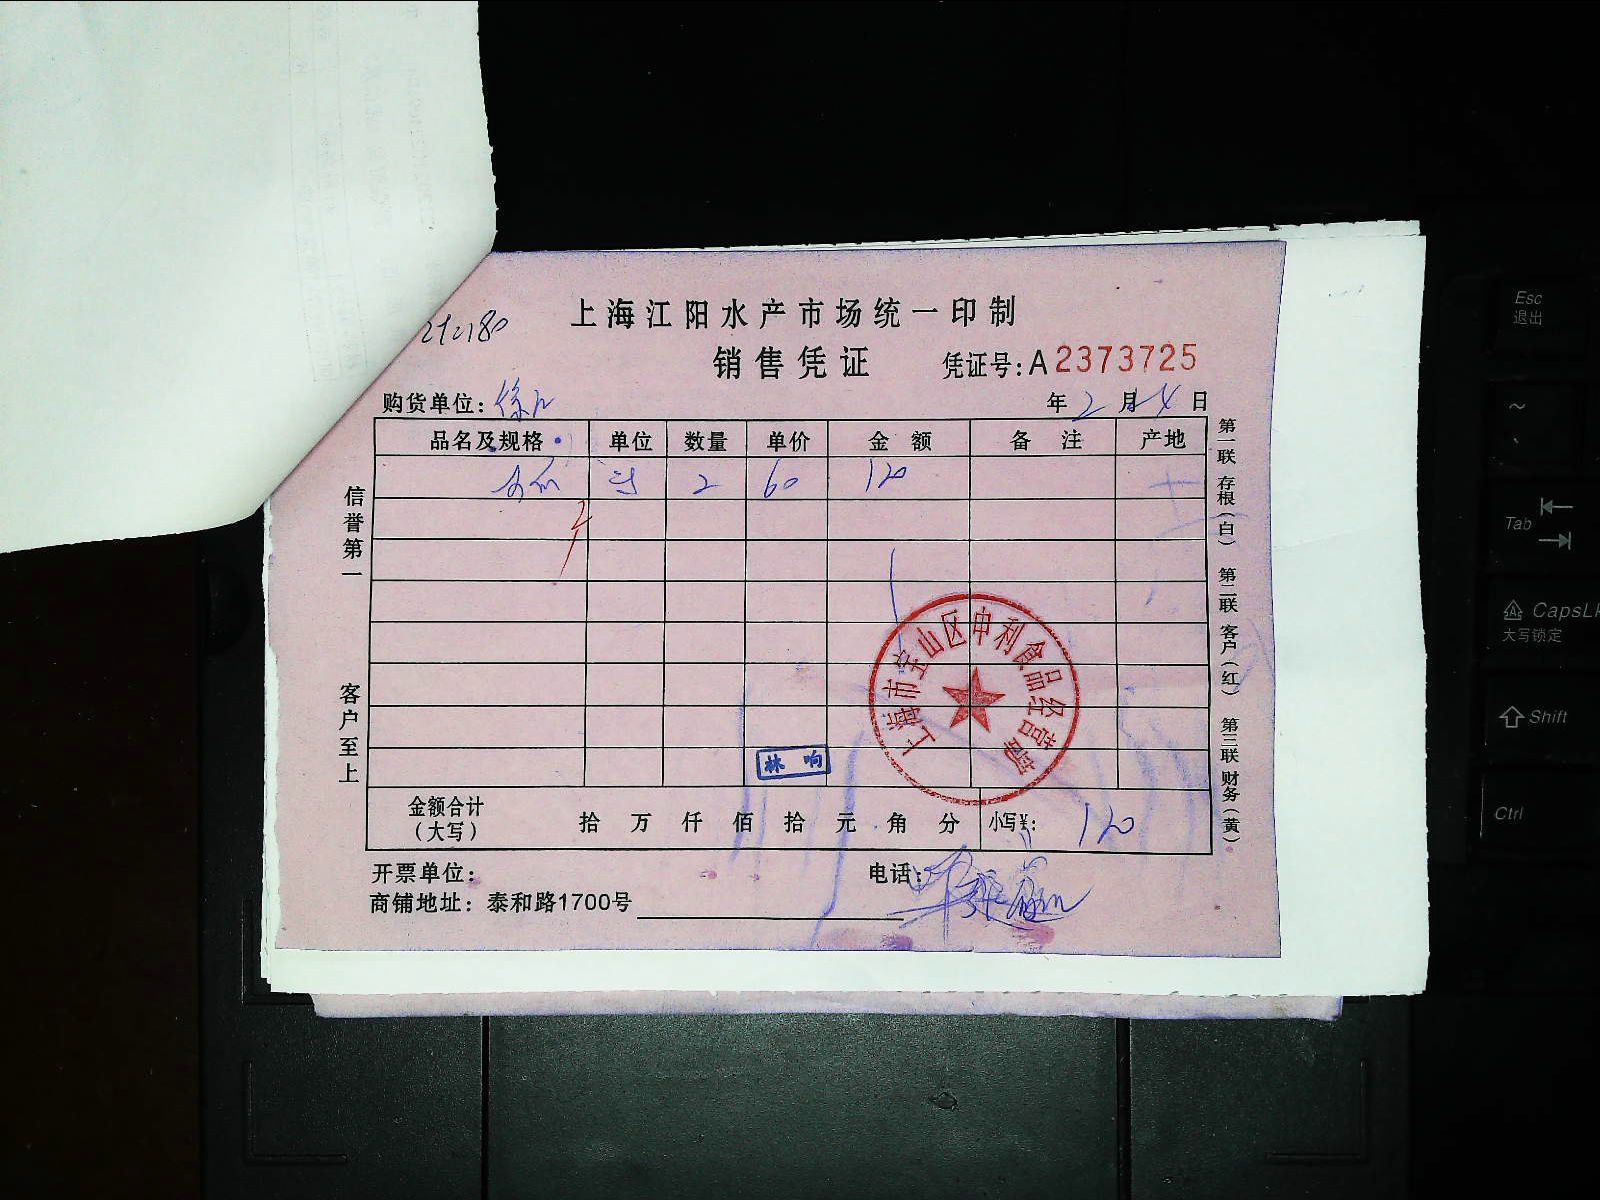 上海江阳水产市场统一印制
销售凭证 凭证号:A2373725
购货单位: 年2月4日
品名及规格 单位 数量 单价 金额 备注 产地
2 60 120
信誉第一
客户至上
第一联 存根(白) 第二联 客户(红) 第三联 财务(黄)
上海市宝山区申利食品经营部
林响
金额合计(大写) 拾 万 仟 佰 拾 元 角 分 小写¥: 120
开票单位: 电话:
商铺地址: 泰和路1700号
Esc
退出
~
Tab
CapsLk
大写锁定
Shift
Ctrl